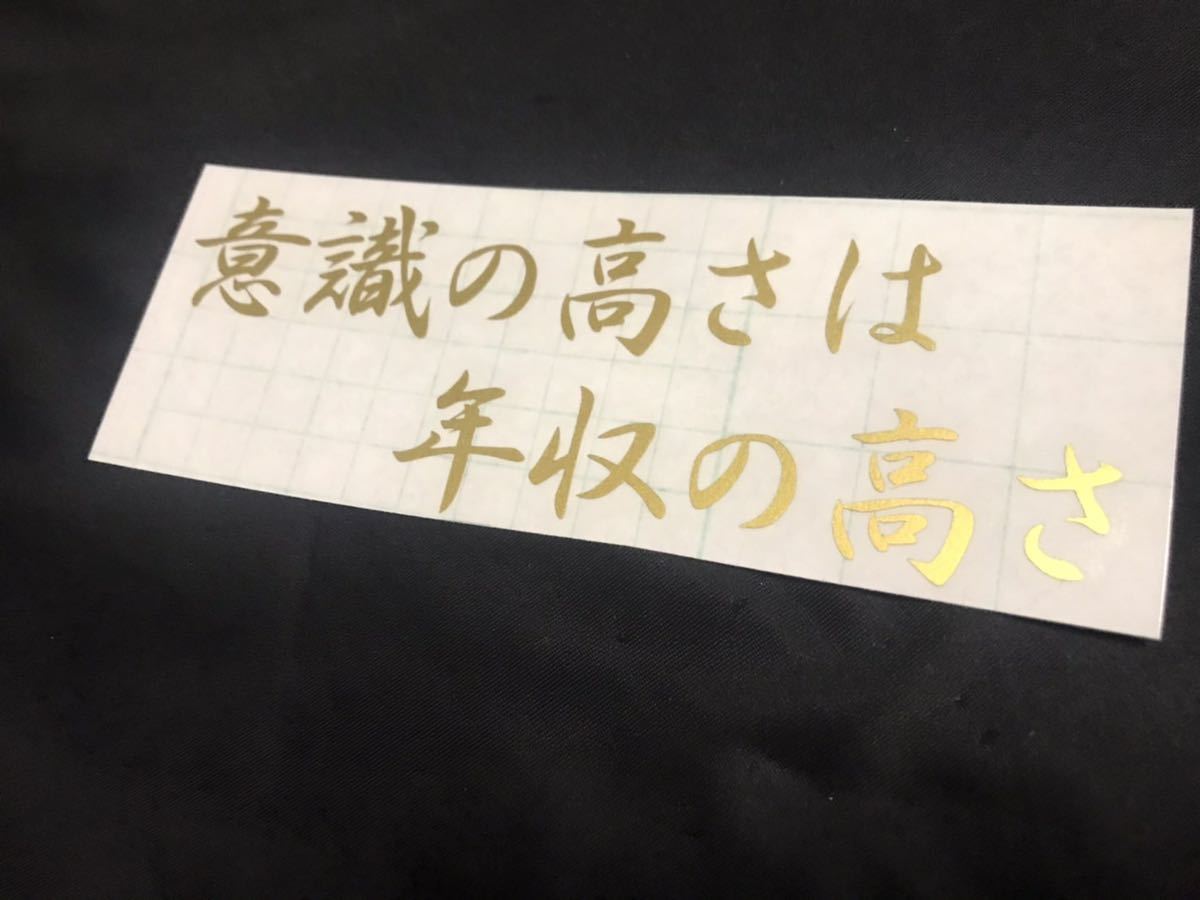 意識の高さは
年収の高さ